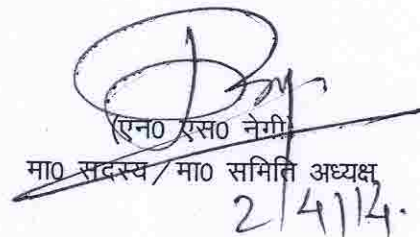 (एन0 एस0 नेगी)
मा0 सदस्य/मा0 समिति अध्यक्ष
2/4/14.